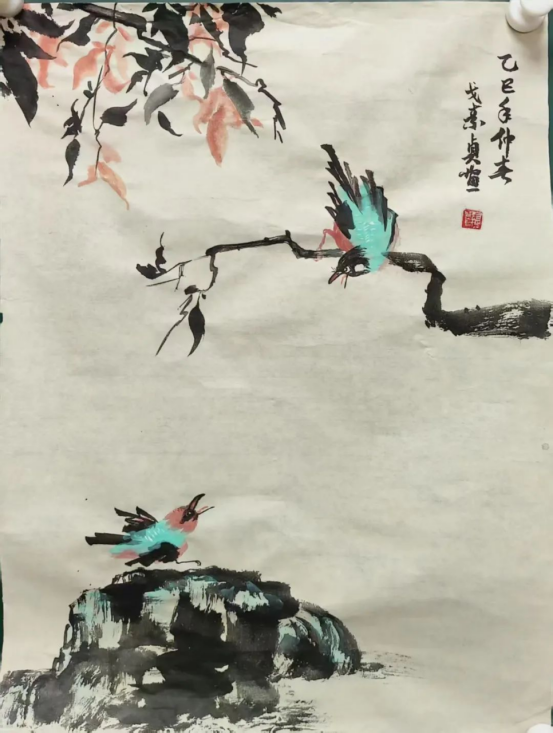 乙巳年仲春
戈荣贞画